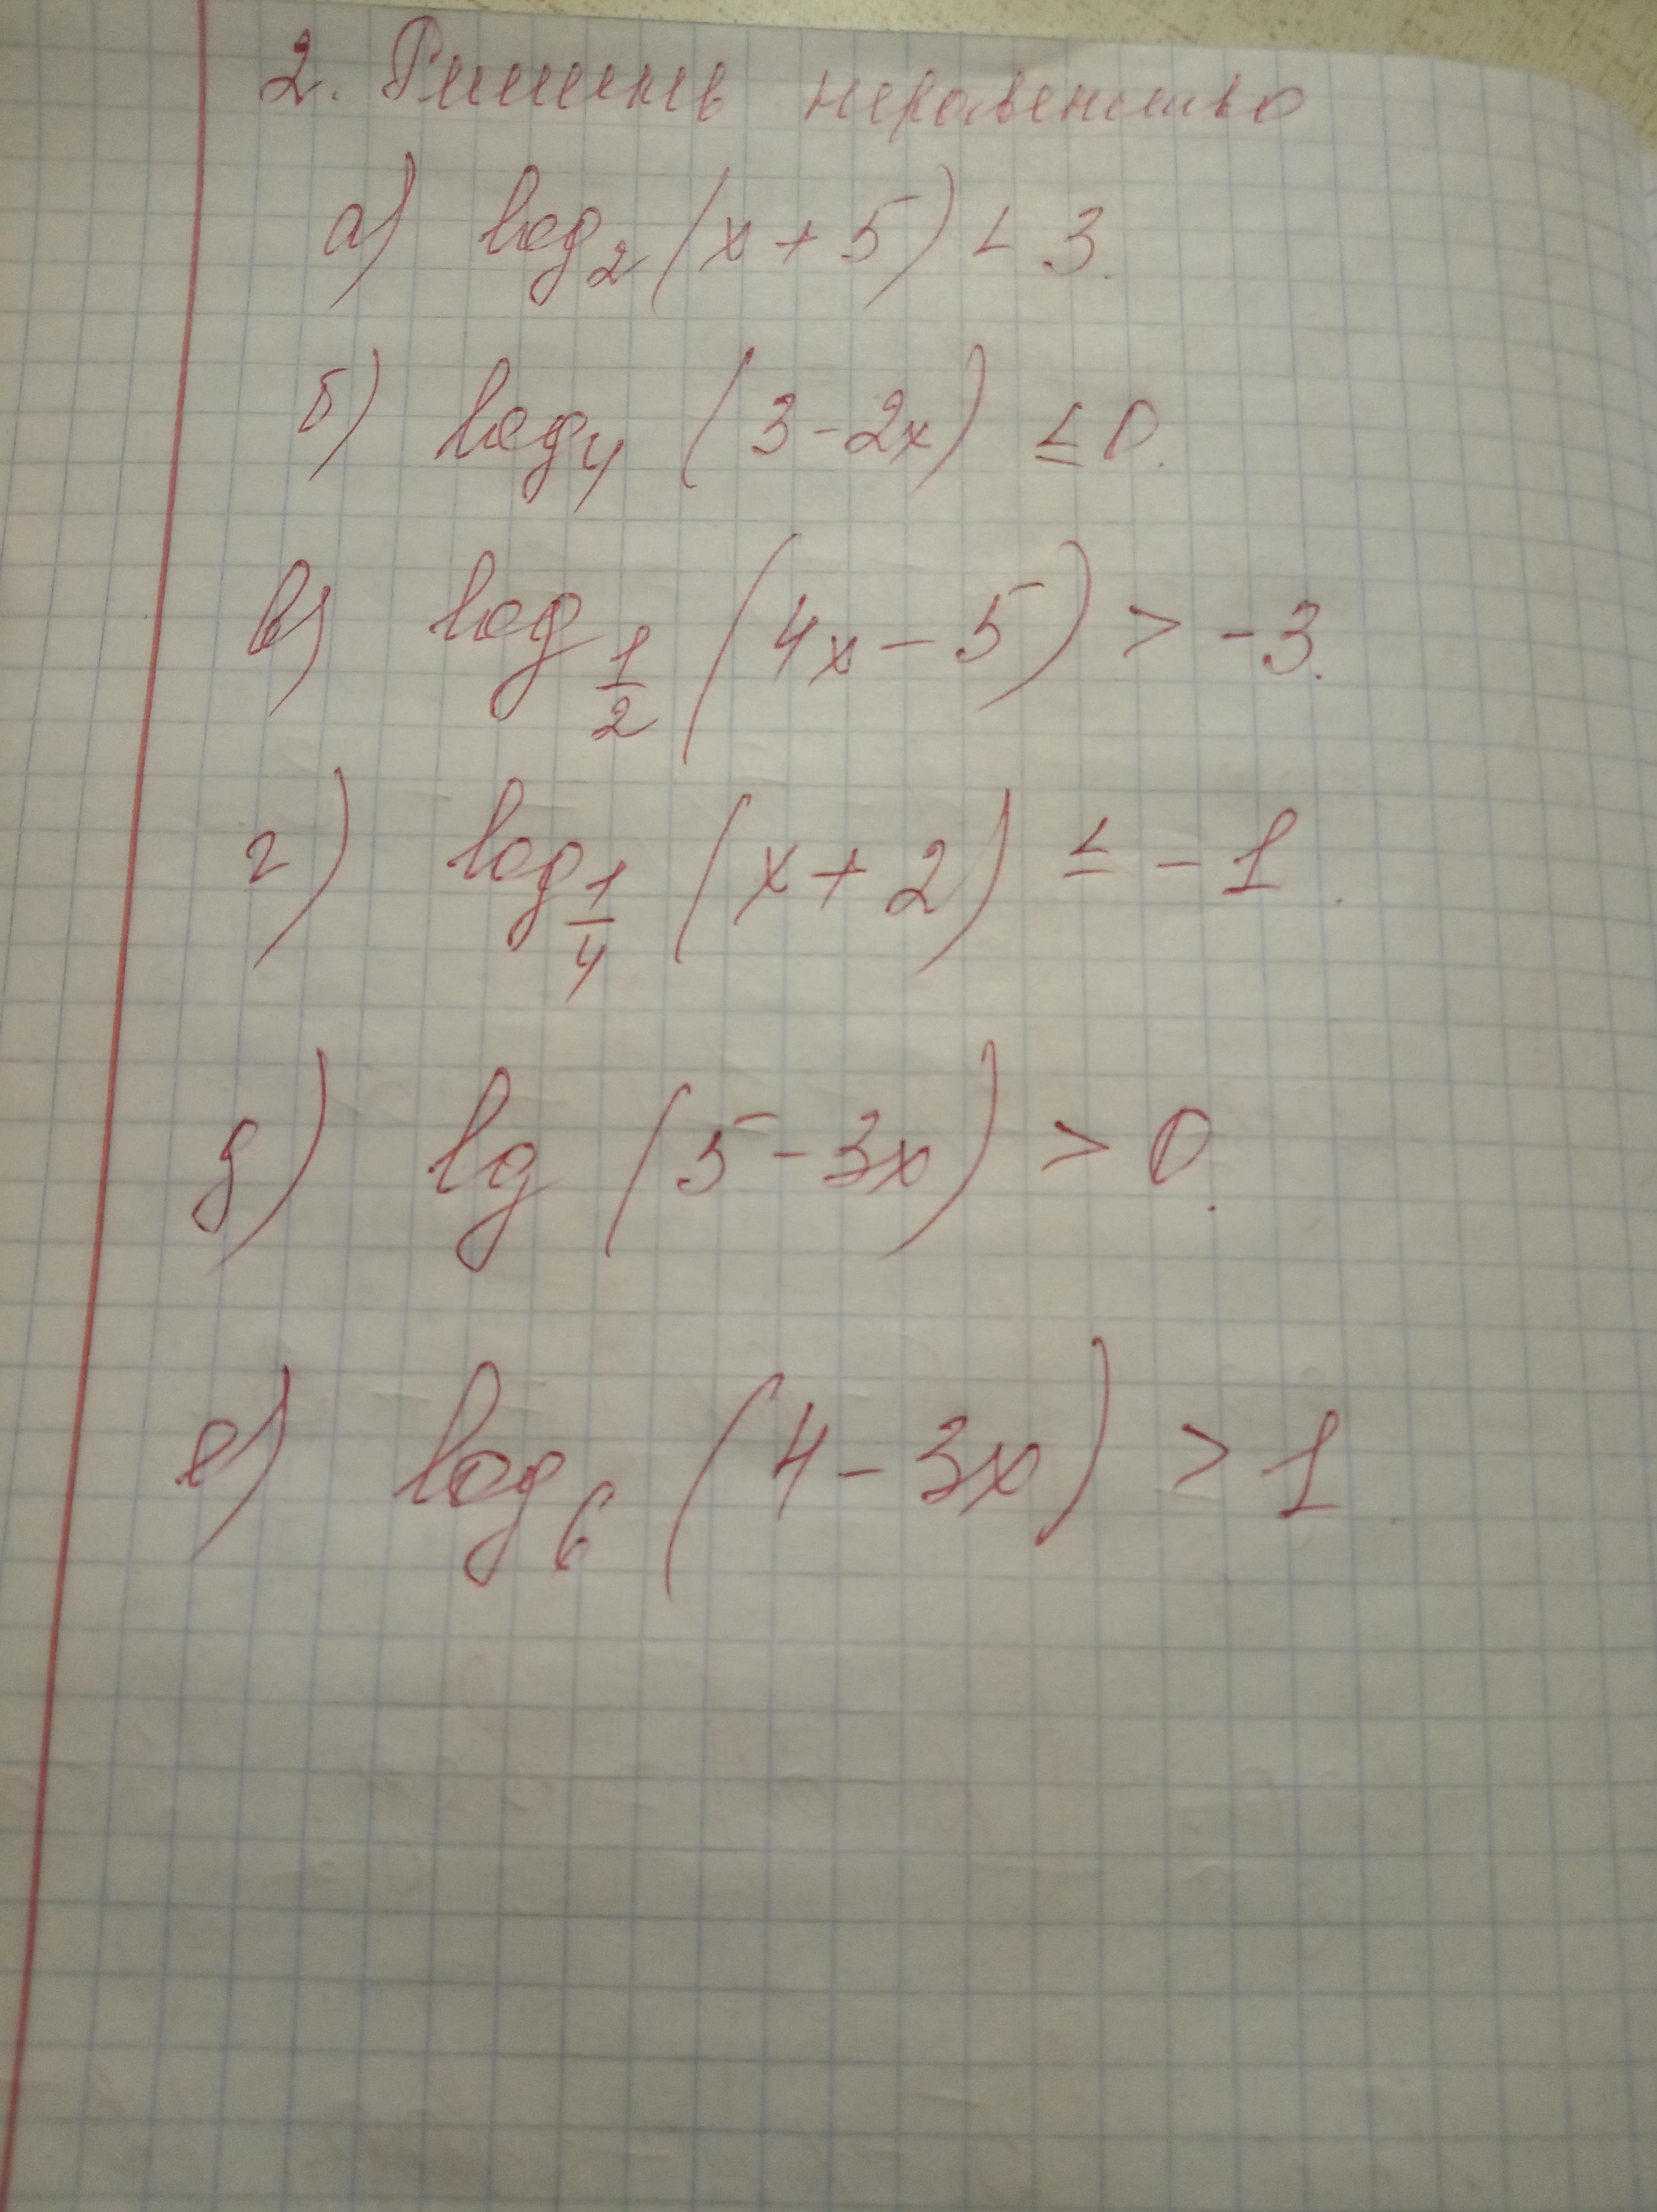 2. Решить неравенство
а) log₂(x + 5) < 3.
б) log₄ (3 - 2x) ≤ 0.
в) log_{1/2} (4x - 5) > -3.
г) log_{1/4} (x + 2) ≤ -1.
д) lg (5 - 3x) > 0.
е) log₆ (4 - 3x) > 1.